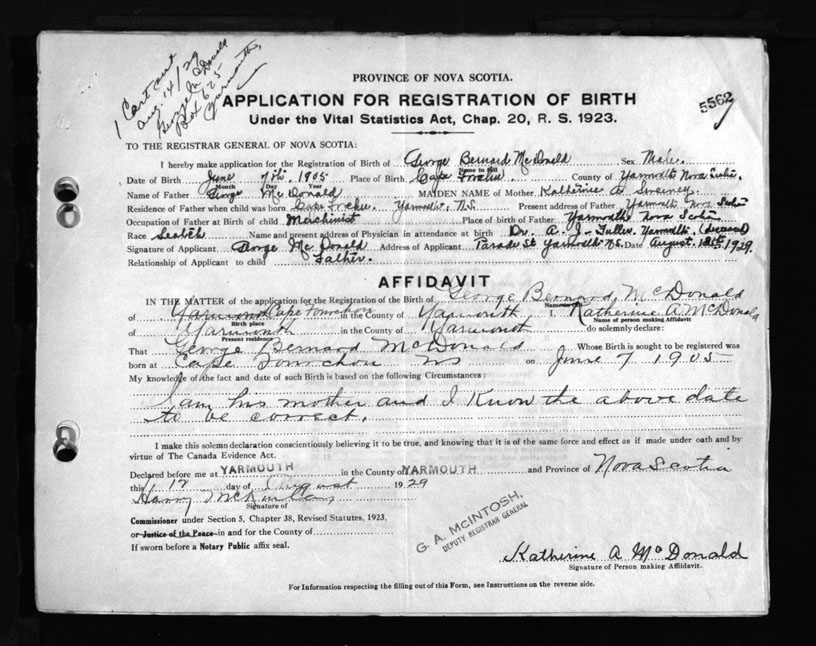 1 Cert sent
Aug. 14/29
George McDonald
Box 625
Yarmouth,
PROVINCE OF NOVA SCOTIA.
5562
APPLICATION FOR REGISTRATION OF BIRTH
Under the Vital Statistics Act, Chap. 20, R. S. 1923.
TO THE REGISTRAR GENERAL OF NOVA SCOTIA:
I hereby make application for the Registration of Birth of George Bernard McDonald Sex Male.
Name in full
Date of Birth June 7th. 1905 Place of Birth Cape County of Yarmouth Nova Scotia.
Month Day Year
Name of Father George McDonald MAIDEN NAME of Mother Katherine A Sweeney
Residence of Father when child was born Cape Yarmouth. N.S. Present address of Father Yarmouth Nova Scotia
Occupation of Father at Birth of child Machinist Place of birth of Father Yarmouth Nova Scotia
Race Scotch Name and present address of Physician in attendance at birth Dr. A. J. Fuller. Yarmouth. (deceased)
Signature of Applicant George McDonald Address of Applicant Parade St Yarmouth N.S. Date August. 1929.
Relationship of Applicant to child Father.
AFFIDAVIT
IN THE MATTER of the application for the Registration of the Birth of George Bernard McDonald
Name in full
of Yarmouth Cape in the County of Yarmouth I, Katherine A McDonald
Birth place Name of person making Affidavit
of Yarmouth in the County of Yarmouth do solemnly declare:
Present residence
That George Bernard McDonald Whose Birth is sought to be registered was
born at Cape NS on June 7 1905
My knowledge of the fact and date of such Birth is based on the following Circumstances:
I am his mother and I Know the above date
to be correct.
I make this solemn declaration conscientiously believing it to be true, and knowing that it is of the same force and effect as if made under oath and by
virtue of The Canada Evidence Act.
Declared before me at YARMOUTH in the County of YARMOUTH and Province of Nova Scotia
this 12 day of August 1929
Harry
Signature of
Commissioner under Section 5, Chapter 38, Revised Statutes, 1923,
or Justice of the Peace in and for the County of
If sworn before a Notary Public affix seal.
G. A. MCINTOSH,
DEPUTY REGISTRAR GENERAL
Katherine A McDonald
Signature of Person making Affidavit.
For Information respecting the filling out of this Form, see Instructions on the reverse side.